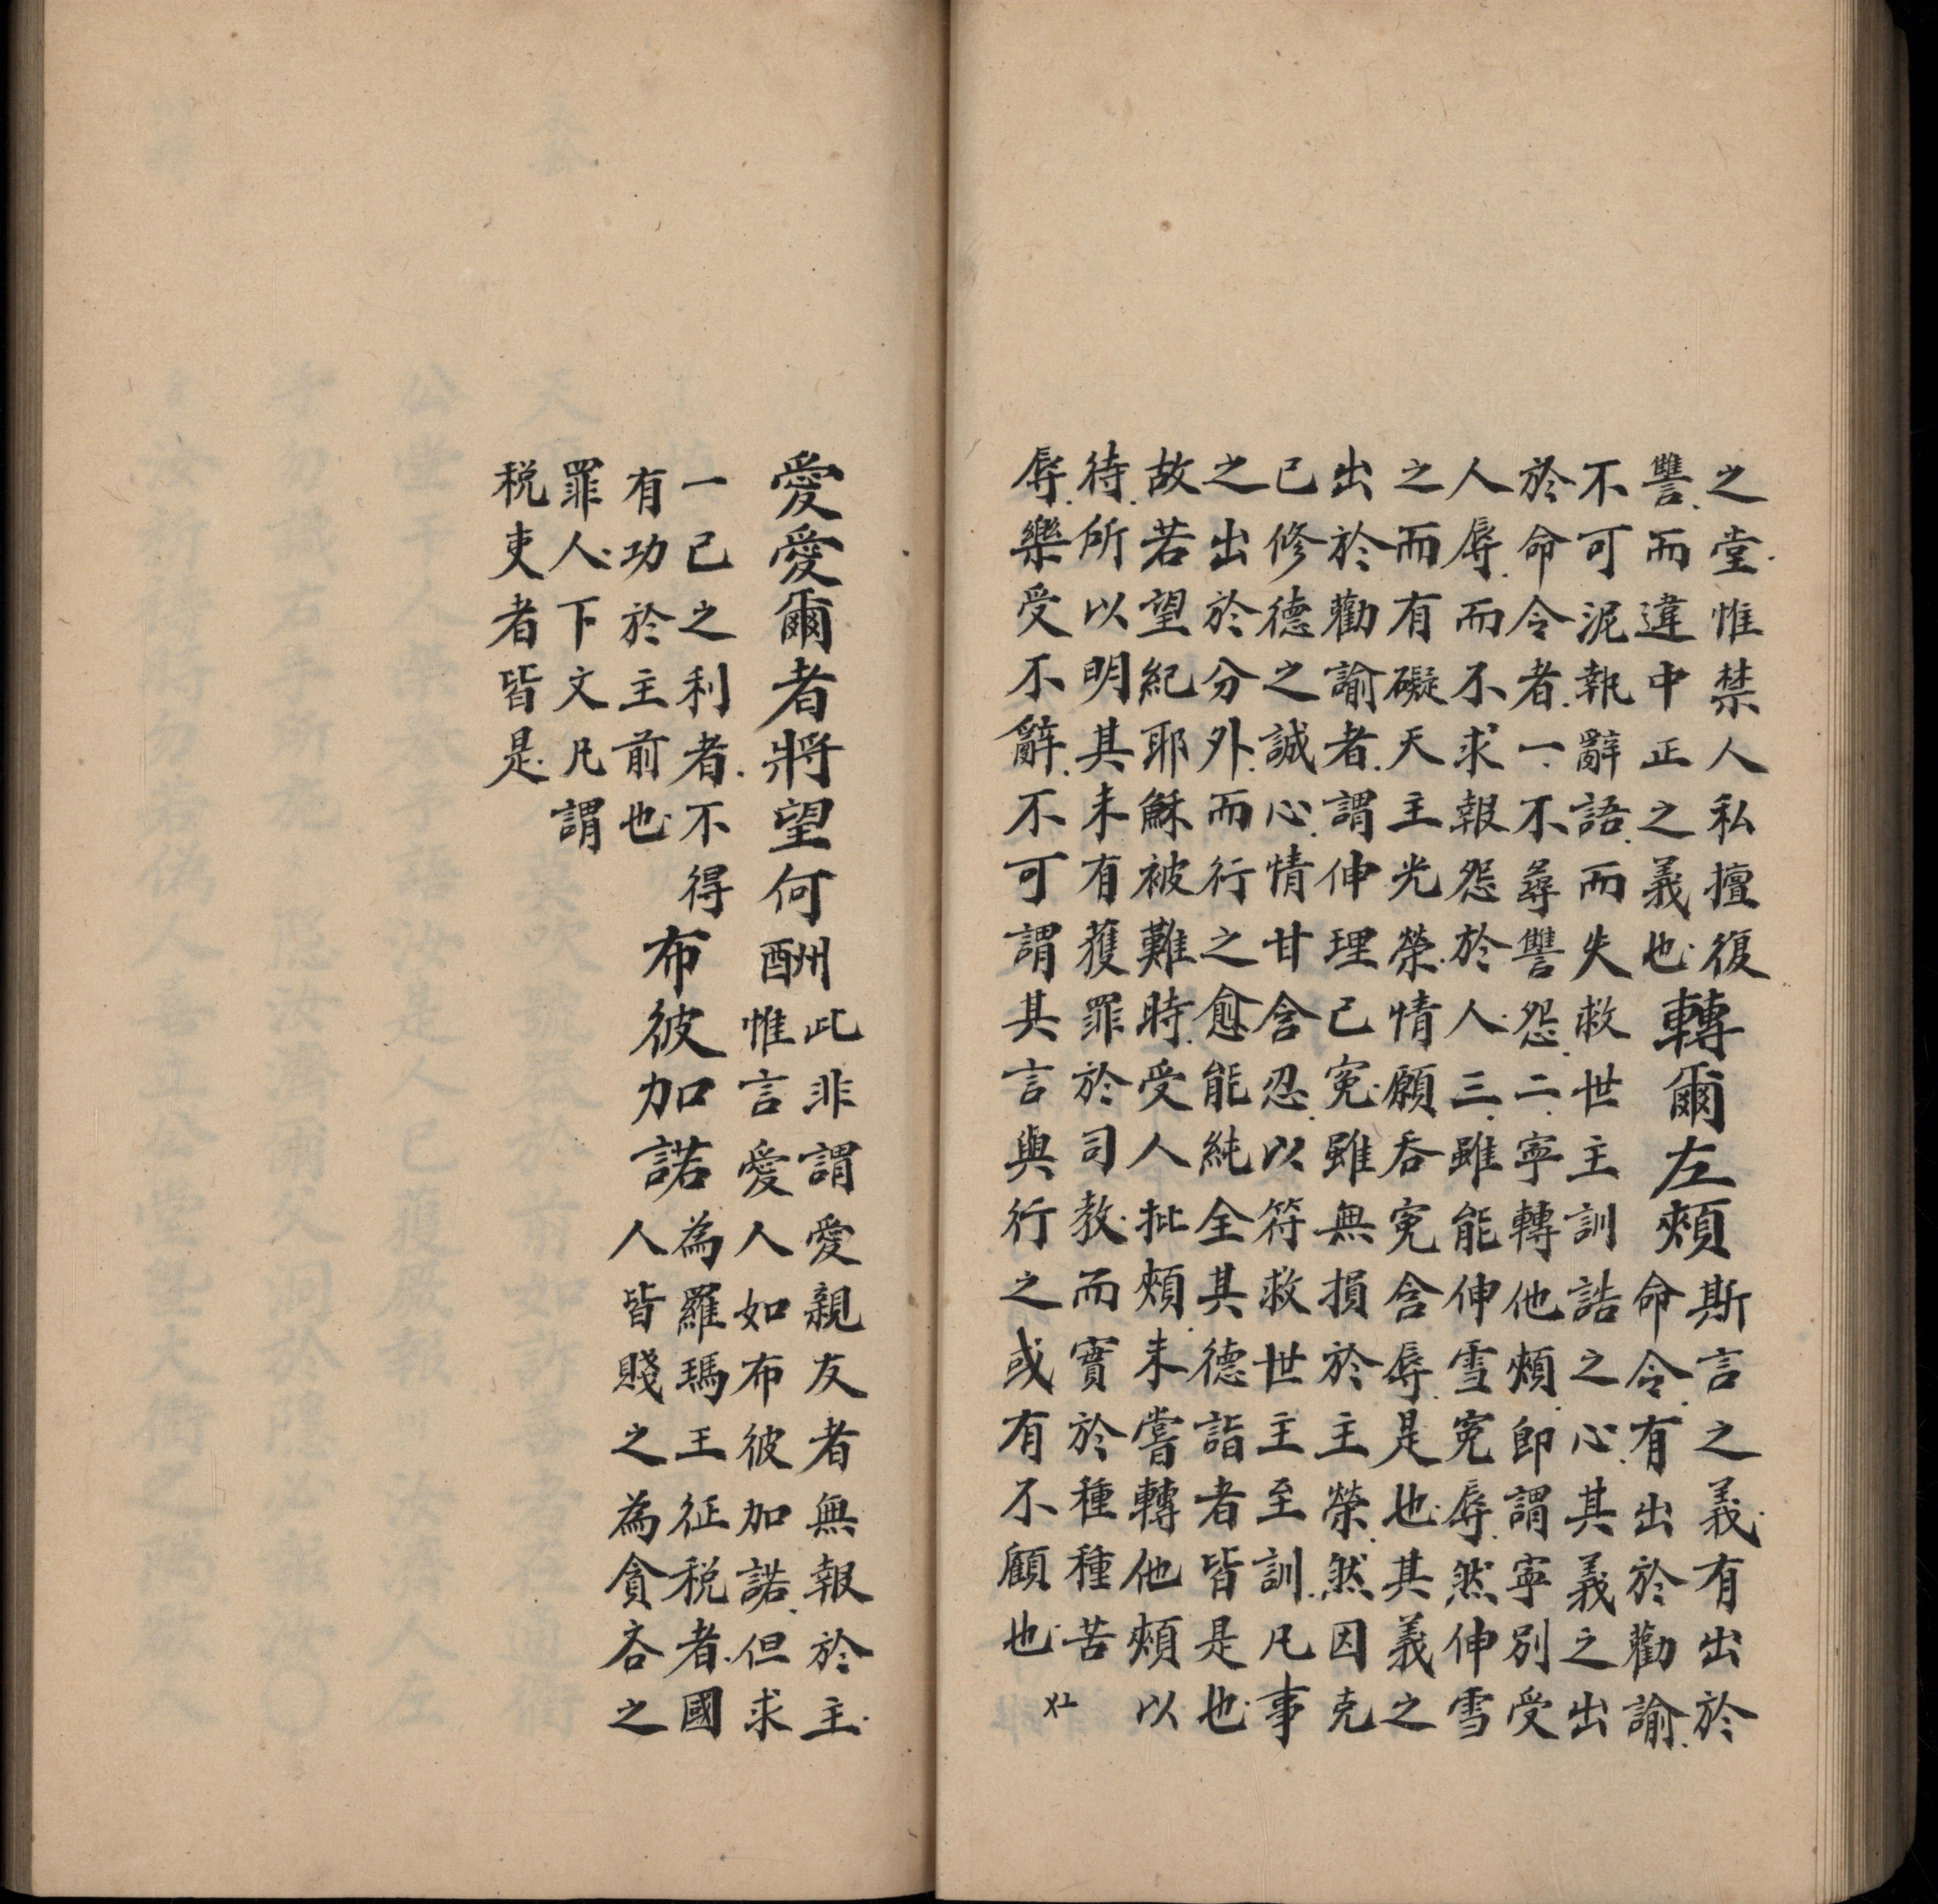 之堂.惟禁人私擅復
讐.而違中正之義也.
轉爾左頰
斯言之義.有出於
命令.有出於勸諭.
不可泥執辭語.而失救世主訓誥之心.其義之出
於命令者.一.不尋讐怨.二.寧轉他頰.即謂寧別受
人辱.而不求報怨於人.三.雖能伸雪冤辱.然伸雪
之而有礙天主光榮.情願吞冤含辱.是也.其義之
出於勸諭者.謂伸理己冤.雖無損於主榮.然因克
己修德之誠心.情甘含忍.以符救世主至訓.凡事
之出於分外.而行之愈能純全其德詣者皆是也.
故若望紀耶穌被難時.受人批頰.未嘗轉他頰以
待.所以明其未有獲罪於司教.而實於種種苦
辱.樂受不辭.不可謂其言與行之或有不顧也.
愛愛爾者將望何酬
此非謂愛親友者無報於主.
惟言愛人如布彼加諾.但求
一己之利者.不得
有功於主前也.
布彼加諾
為羅瑪王征税者.國
人皆賤之為貪吝之
罪人.下文凡謂
税吏者皆是.